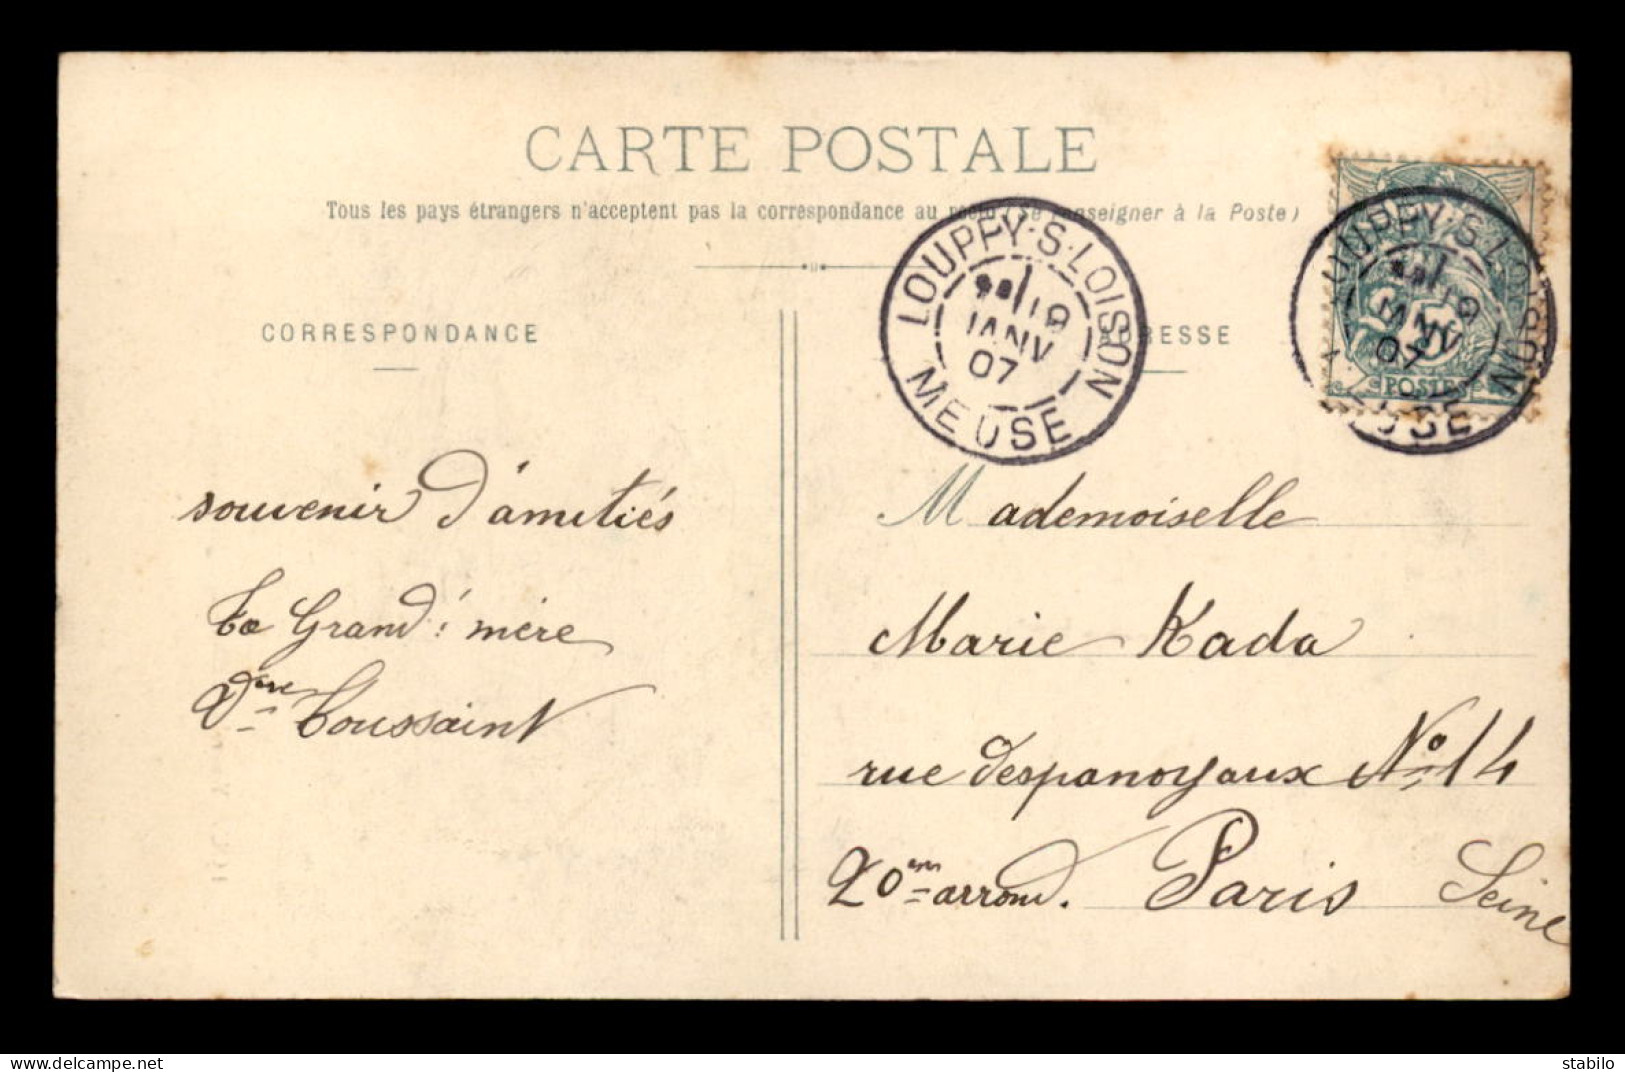 CARTE POSTALE
Tous les pays étrangers n'acceptent pas la correspondance au recto (Se renseigner à la Poste)
LOUPPY-S-LOISON
19
JANV
07
MEUSE
LOUPPY-S-LOISON
19
JANV
07
MEUSE
5
POSTES
CORRESPONDANCE
ADRESSE
souvenir d'amitiés
ta Grand'mère
Vve Toussaint
Mademoiselle
Marie Kada
rue despanoyaux No 14
20em arrond. Paris Seine
stabilo
vendredi 7 mars 2025